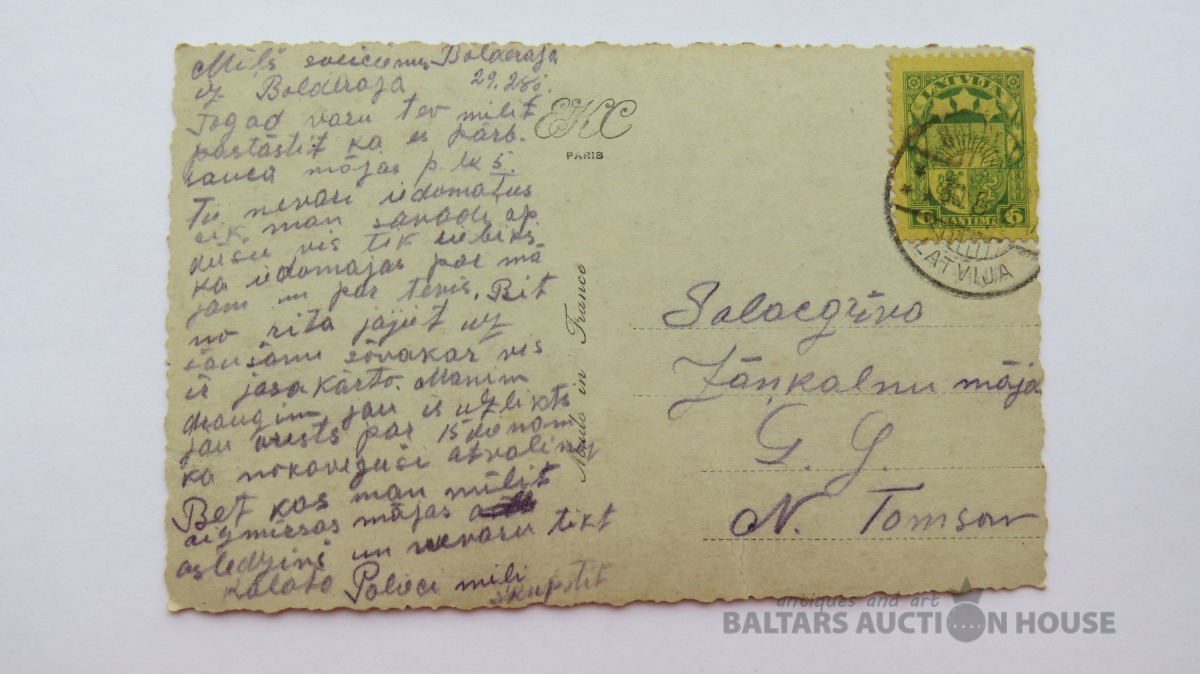 Miļš sveiciens Bolderaja
uz Bolderaja 29. 28
Tagad varu tev milit
pastāstit ka es pārb-
rauca mājas p. lk 5.
Tu nevari iedomatus
cik man savadi ap
dušu vis tik
ka iedomajas par mā
jam un par tevis. Bit
no rita jājiet uz
šaušanu sōvakar vis
ir jasakārto. Manim
draugim jau ir uzlikts
jau arests par 15 dienam
ka nokavejuši atvaliņ
Bet kas man milit
aizmirsas mājas
asledziņi un nevaru tikt
Palieci mili
skupstit
EKC
PARIS
Made in France
LATVIJA
6 SANTIMI 6
LATVIJA
Salacgrīva
Zāņkalnu māja
G. G.
N. Tomson
antiques and art
BALTARS AUCTION HOUSE